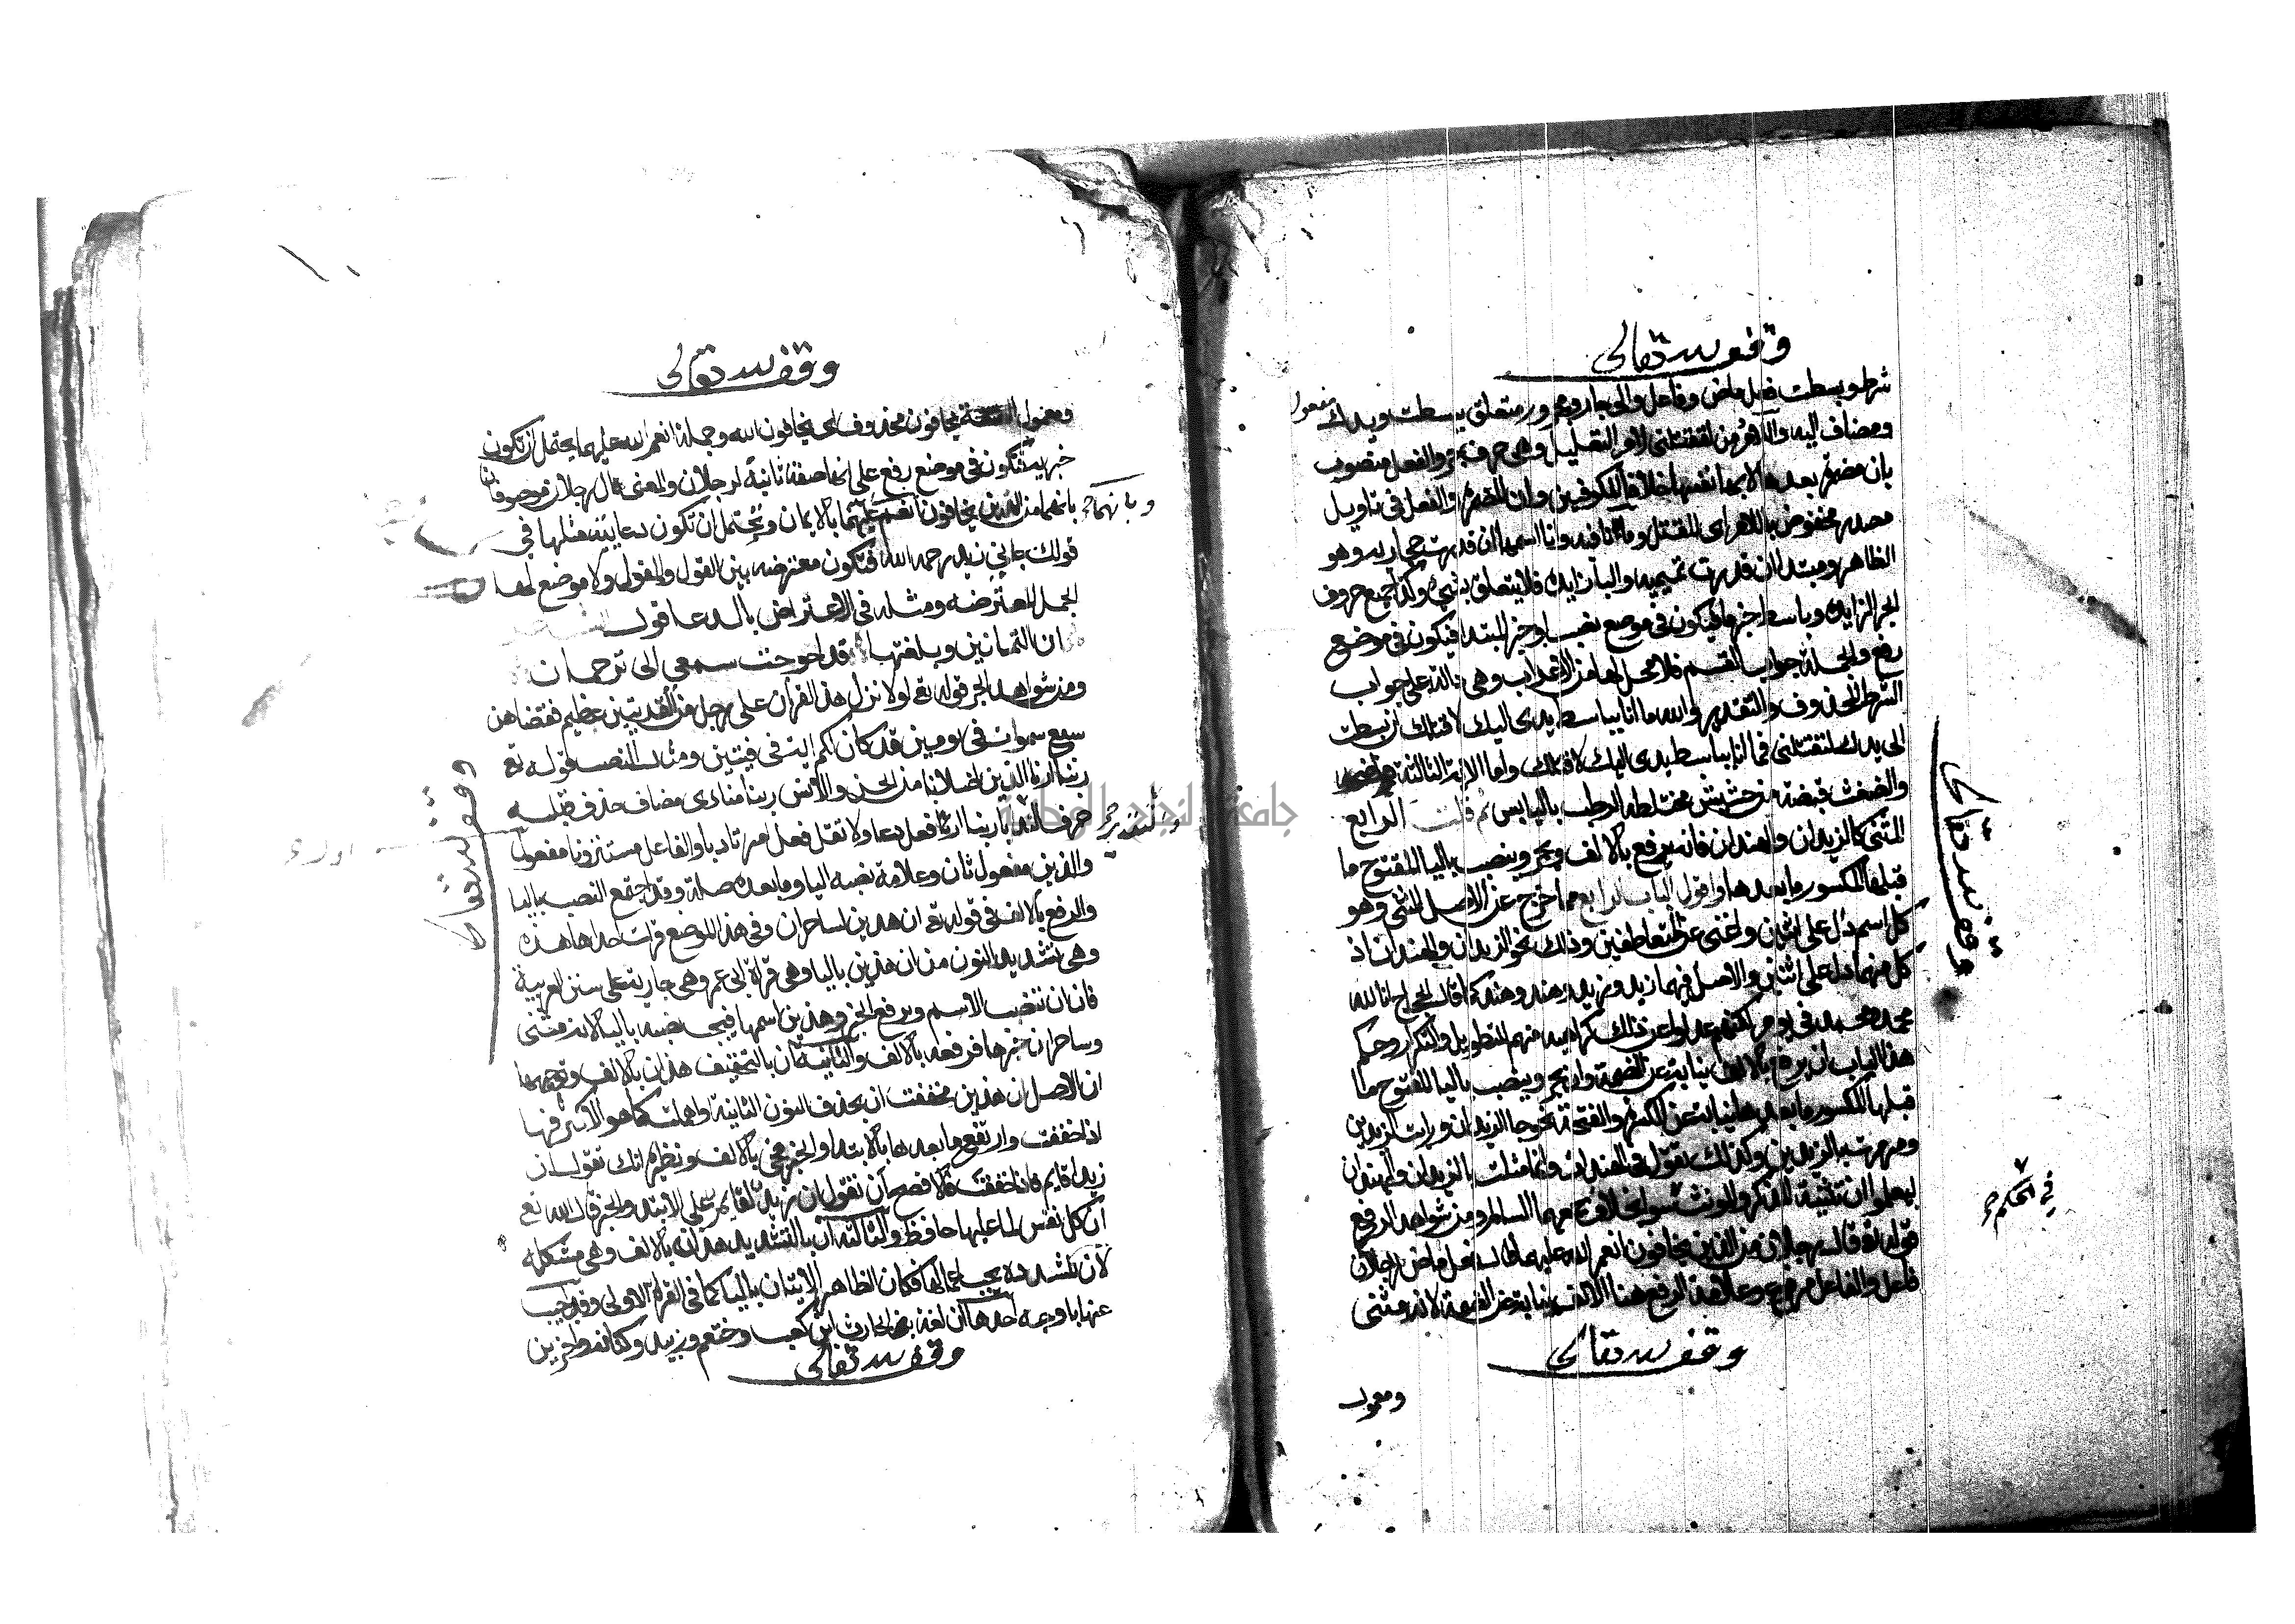 وقف لله تعالى
شرط وبسطت فعل ماض وفاعل والى جار ومجرور متعلق ببسطت ويدك مفعول
ومضاف اليه واللام من لتقتلني لام التعليل وهي حرف جر والفعل منصوب
بان مضمرة بعدها لا بها نفسها خلافا للكوفيين وان المضمرة والفعل في تاويل
مصدر مخفوض باللام اى للقتل وما نافيه وانا اسمها ان قدرت حجازيه وهو
الظاهر ومبتدا ان قدرت تميميه والبا زايدة فلا يتعلق بشي وكذا جميع حروف
الجر الزايدة وباسط خبرها فيكون في موضع نصب او خبر المبتدا فيكون في موضع
رفع والجملة جواب القسم فلا محل لها من الاعراب وهي دالة على جواب
الشرط المحذوف والتقدير والله ما انا بباسط يدى اليك لاقتلك ان بسطت
الى يدك لتقتلني فما انا بباسط يدى اليك لاقتلك واما الاية الثالثة
والضغث قبضة من حشيش مختلطه الرطب باليابس ثم قلت الرابع
المثنى كالزيدان والهندان فانه يرفع بالالف ويجر وينصب باليا المفتوح ما
قبلها المكسور ما بعدها واقول الباب الرابع مما خرج عن الاصل المثنى وهو
كل اسم دل على اثنان واغنى عن المتعاطفين وذلك نحو الزيدان والهندان اذ
كل منهما دل على اثنين والاصل فيهما زيد وزيد وهند وهند كما قال الحجاج انا لله
محمد ومحمد في يوم لكنهم عدلوا عن ذلك كراهية منهم للتطويل والتكرار وحكم
هذا الباب ان يرفع بالالف نيابة عن الضمة وان يجر وينصب باليا المفتوح ما
قبلها المكسور ما بعدها نيابة عن الكسرة والفتحة نحو جا الزيدان ورايت الزيدين
ومررت بالزيدين وكذلك تقول في الهندان وانما مثلت بالزيدان والهندان
ليعلموا ان تثنية المذكر والمونث سوا بخلاف جمعهما السالم ومن شواهد الرفع
قوله تع قال رجلان من الذين يخافون انعم الله عليهما قال فعل ماض رجلان
فاعل والفاعل مرفوع وعلامة الرفع هنا الالف نيابة عن الضمة لانه مثنى
وقف لله تعالى
ومعمول
وقف لله تعالى
في الحكم
وقف لله تعالى
ومعمول يخافون محذوف اى يخافون الله وجملة انعم الله عليهما يحتمل ان تكون
خبريه فتكون في موضع رفع على انها صفة ثانية لرجلان والمعنى قال رجلان موصوفان
بانهما من الذين يخافون وبانهما انعم عليهما بالايمان ويحتمل ان تكون دعاييه مثلها في
قولك جاني زيد رحمه الله فتكون معترضه بين القول والمقول ولا موضع لها
الجمل المعترضه ومثله في الاعتراض بالدعا قول
ان الثمانين وبلغتها قد احوجت سمعي الى ترجمان
ومن شواهد الجر قوله تع لولا نزل هذا القران على رجل من القريتين عظيم فقضاهن
سبع سموات في يومين قد كان لكم اية في فيتين ومثال النصب قوله تع
ربنا ارنا الذين اضلانا من الجن والانس ربنا منادى مضاف حذف قبله
حرف الندا والتقدير يا ربنا ارنا فعل دعا ولا تقل فعل امر تادبا والفاعل مستتر ونا مفعول
والذين مفعول ثان وعلامة نصبه اليا وما بعده صلة وقد اجتمع النصب باليا
والرفع بالالف في قوله تع ان هذين لساحران وفي هذا الموضع قرات احداها هذه
وهي تشديد النون من ان هذين باليا وهي قراة ابي عمرو وهي جارية على سنن العربية
فان ان تنصب الاسم وترفع الخبر وهذين اسمها فيجب نصبه باليا لانه مثنى
وساحران خبرها فرفعه بالالف والثانية ان بالتخفيف هذان بالالف وتوجيهها
ان الاصل ان هذين فخففت ان بحذف النون الثانية واهملت كما هو الاكثر فيها
اذا خففت وارتفع ما بعدها بالابتدا والخبر فجي بالالف ونظيره انك تقول ان
زيدا قايم فاذا خففت فالافصح ان تقول ان زيد لقايم على الابتدا والخبر قال الله تع
ان كل نفس لما عليها حافظ والثالثة ان بالتشديد هذان بالالف وهي مشكله
لان ان المشددة يجب اعمالها فكان الظاهر الاتيان باليا كما في القراة الاولى وقد اجيب
عنها باوجه احدها ان لغة بني الحارث ابن كعب وخثعم وزبيد وكنانه واخرين
وقف لله تعالى
وقف لله تعالى
جامعة النجاح الوطنية